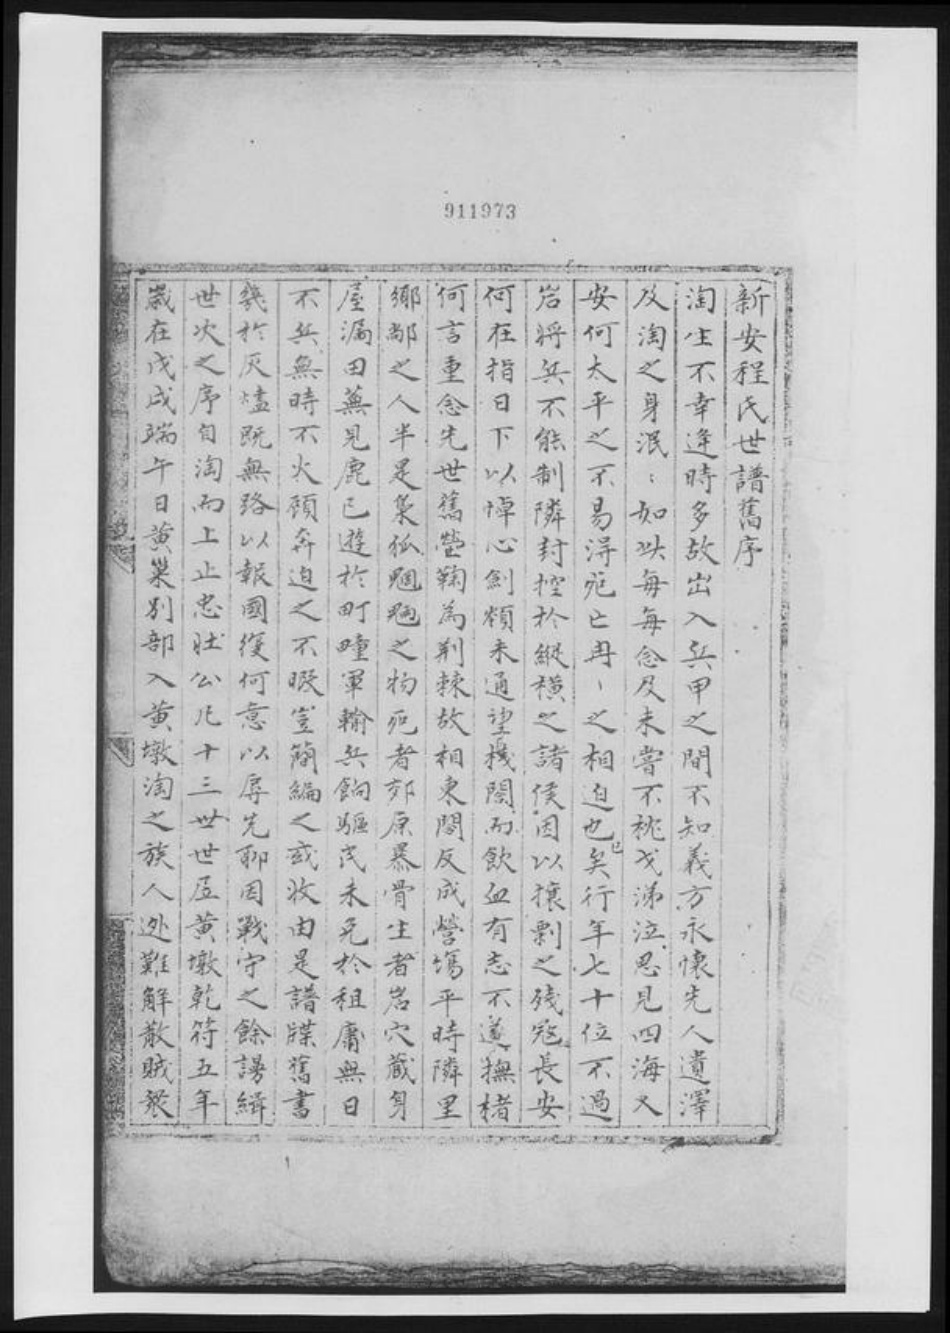 911973
新安程氏世譜舊序
淘生不幸逢時多故出入兵甲之間不知義方永懷先人遺澤
及淘之身泯：如此每每念及未嘗不枕戈涕泣思見四海乂
安何太平之不易得死亡冉丶之相迫也已矣行年七十位不過
岩將兵不能制隣封控於縱橫之諸侯因以攘剽之殘寇長安
何在指日下以悼心創頻未通望機闇而飲血有志不遂撫楮
何言重念先世舊塋鞠為荆棘故相東閣反成營塲平時隣里
鄉鄰之人半是梟狐魍魎之物死者郊原暴骨生者岩穴蔵身
屋漏田蕪見鹿已遊於町畽軍輸兵餉驅民未免於租庸無日
不兵無時不火顾奔迫之不暇豈簡編之或收由是譜牒舊書
幾於灰燼既無路以報國復何意以辱先聊因戰守之餘謾緝
世次之序自淘而上止忠壯公凡十三世世居黄墩乾符五年
歲在戊戌端午日黄巢别部入黄墩淘之族人迯難解散賊衆